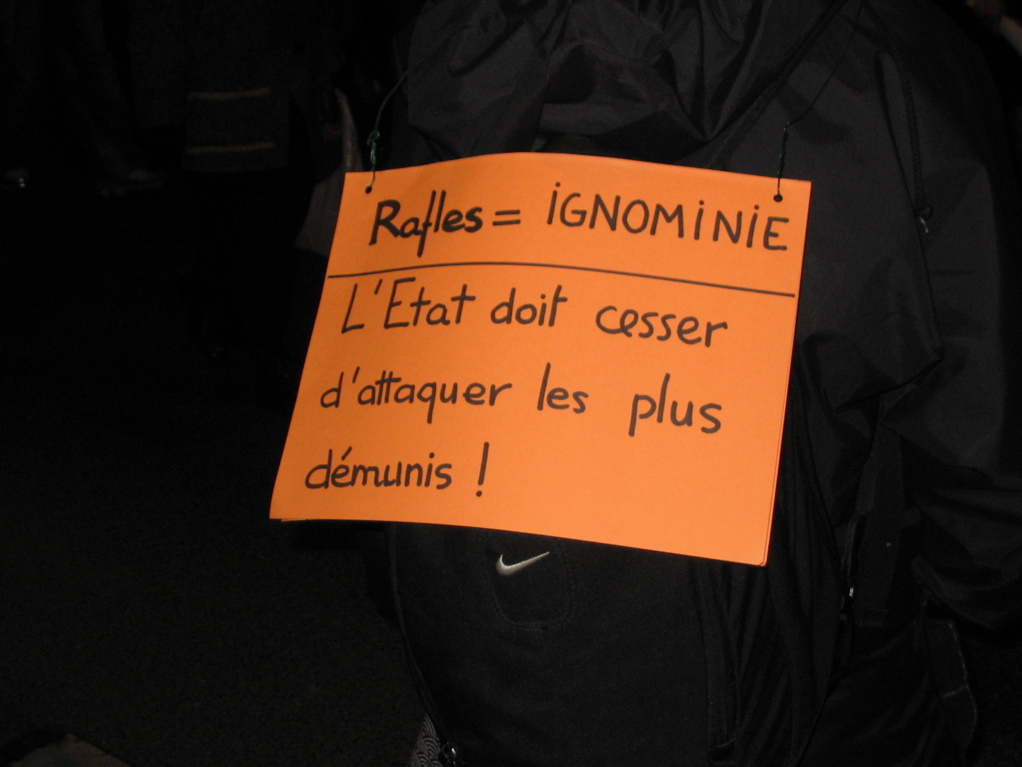 Rafles = iGNOMiNiE
L'Etat doit cesser
d'attaquer les plus
démunis !